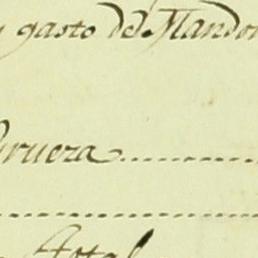 y gasto del Mandon
ruera
Total